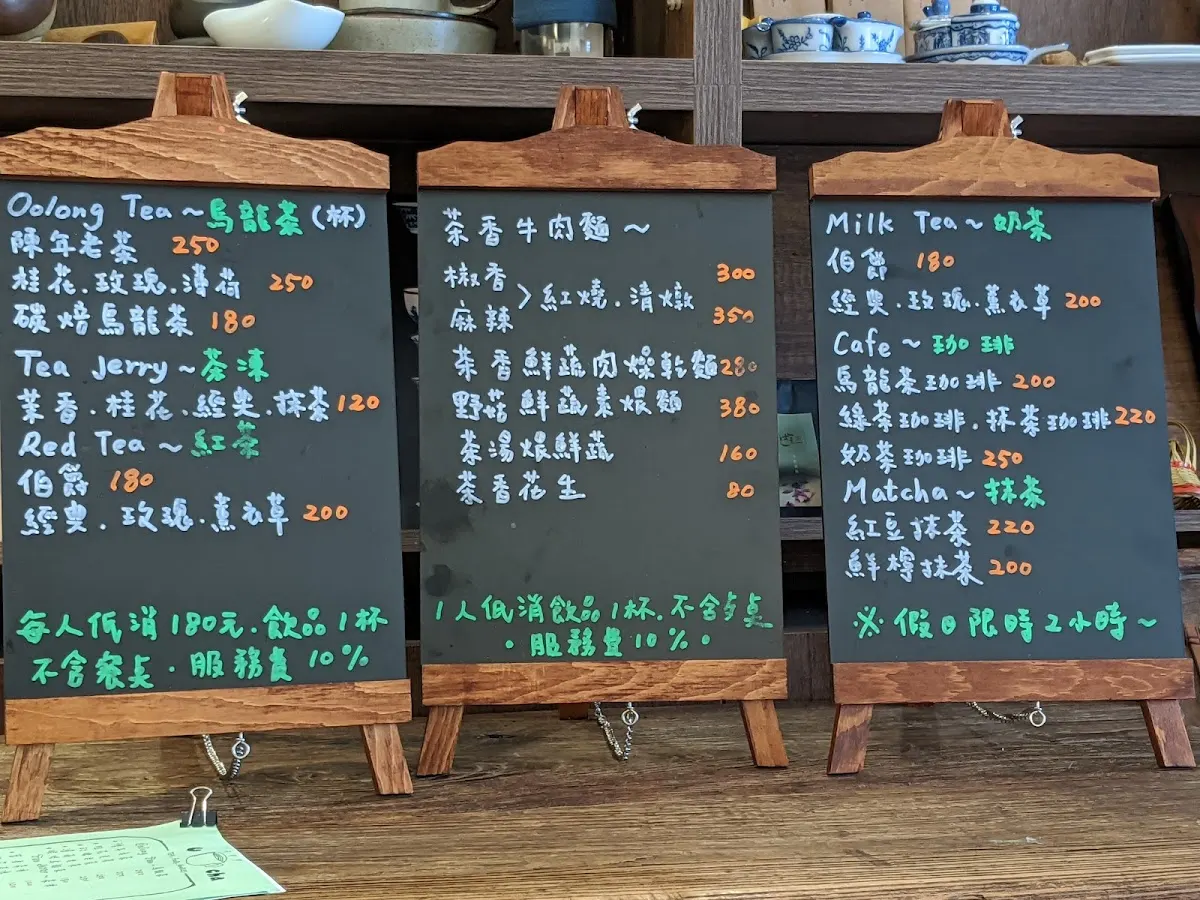 Oolong Tea~烏龍茶(杯)
陳年老茶 250
桂花.玫瑰.薄荷 250
碳焙烏龍茶 180
Tea Jerry~茶凍
茉香.桂花.經典.抹茶 120
Red Tea~紅茶
伯爵 180
經典.玫瑰.薰衣草 200
每人低消180元.飲品1杯
不含餐点.服務費10%
茶香牛肉麵~
椒香 300
>紅燒.清燉
麻辣 350
茶香鮮蔬肉燥乾麵 280
野菇鮮蔬素煨麵 380
茶湯煨鮮蔬 160
茶香花生 80
1人低消飲品1杯.不含点桌
·服務費10%·
Milk Tea~奶茶
伯爵 180
經典.玫瑰.薰衣草 200
Cafe~珈琲
烏龍茶珈琲 200
綠茶珈琲.抹茶珈琲 220
奶茶珈琲 250
Matcha~抹茶
紅豆抹茶 220
鮮檸抹茶 200
※假日限時2小時~
cha